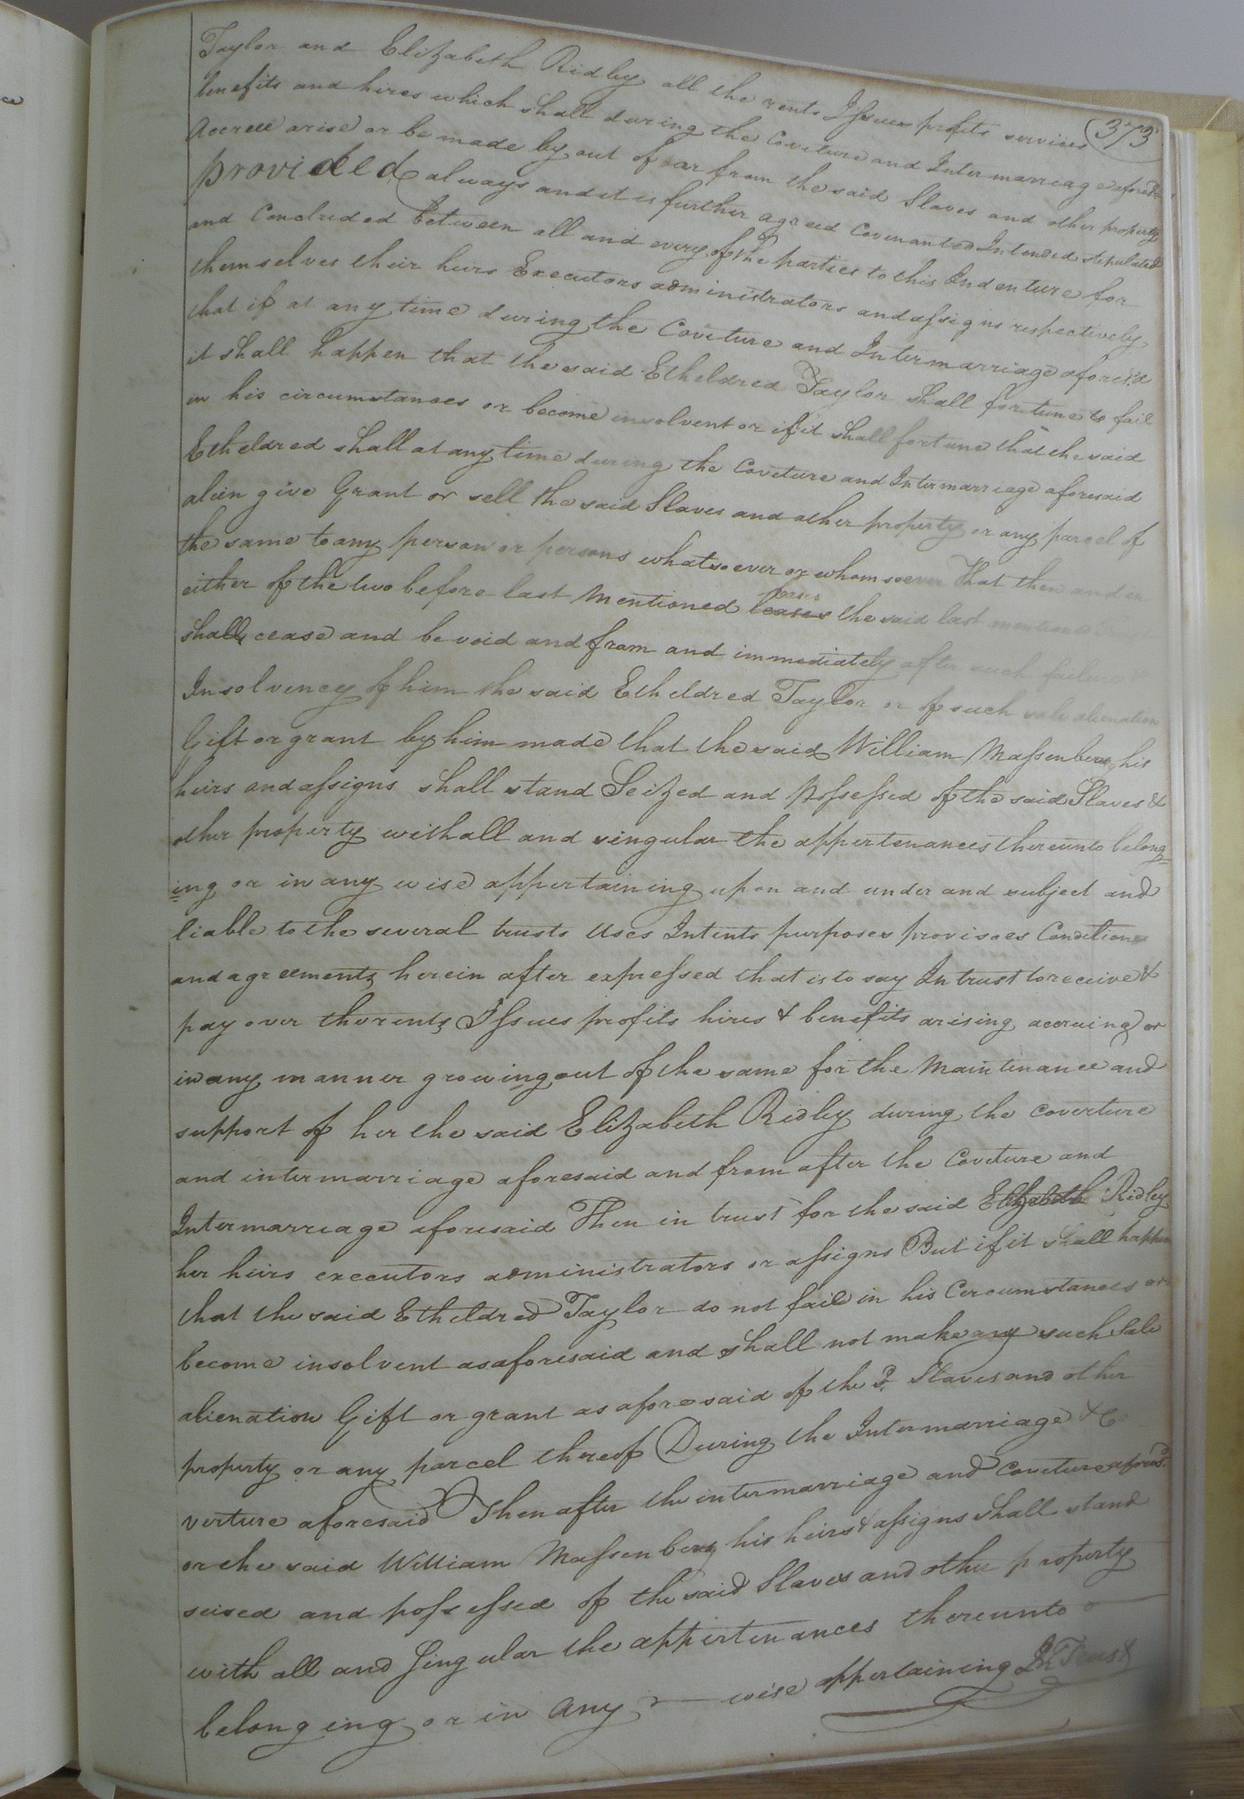 373
Taylor and Elizabeth Ridley all the rents Issues profits services
benefits and hires which shall during the Coveture and Intermarriage aforesd
accrue arise or be made by out of oar from the said Slaves and other property
provided always and it is further agreed Covenanted Intended stipulated
and Concluded between all and every of the parties to this Indenture for
themselves their heirs Executors administrators and assigns respectively
that if at any time during the Coveture and Intermarriage aforesd
it shall happen that the said Etheldred Taylor shall fortune to fail
in his circumstances or become insolvent or if it shall fortune that the said
Etheldred shall at any time during the Coveture and Intermarriage aforesaid
alien give Grant or sell the said Slaves and other property or any parcel of
the same to any person or persons whatsoever or whomsoever That then and in
either of the two before last mentioned cases the said last mentioned
shall cease and be void and from and immediately after such failure
Insolvency of him the said Etheldred Taylor or of such sale alienation
Gift or grant by him made that the said William Massenberg his
heirs and assigns shall stand Seized and possessed of the said Slaves &
other property with all and singular the appertenances thereunto belong=
=ing or in any wise appertaining upon and under and subject and
liable to the several trusts Uses Intents purposes provisoes Conditions
and agreements herein after expressed that is to say In trust to receive &
pay over the rents Issues profits hires & benefits arising accruing or
in any manner growing out of the same for the Maintenance and
support of her the said Elizabeth Ridley during the coverture
and intermarriage aforesaid and from after the Coveture and
Intermarriage aforesaid Then in trust for the said Elizabeth Ridley
her heirs executors administrators or assigns But if it shall happen
that the said Etheldred Taylor do not fail in his Circumstances or
become insolvent as aforesaid and shall not make any such Sale
alienation Gift or grant as aforesaid of the sd. Slaves and other
property or any parcel thereof During the Intermarriage & Co
verture aforesaid Then after the intermarriage and Coveture aforesd.
or the said William Massenberg his heirs & assigns shall stand
seised and possessed of the said Slaves and other property
with all and Singular the appertenances thereunto
belonging or in any wise appertaining In Trust